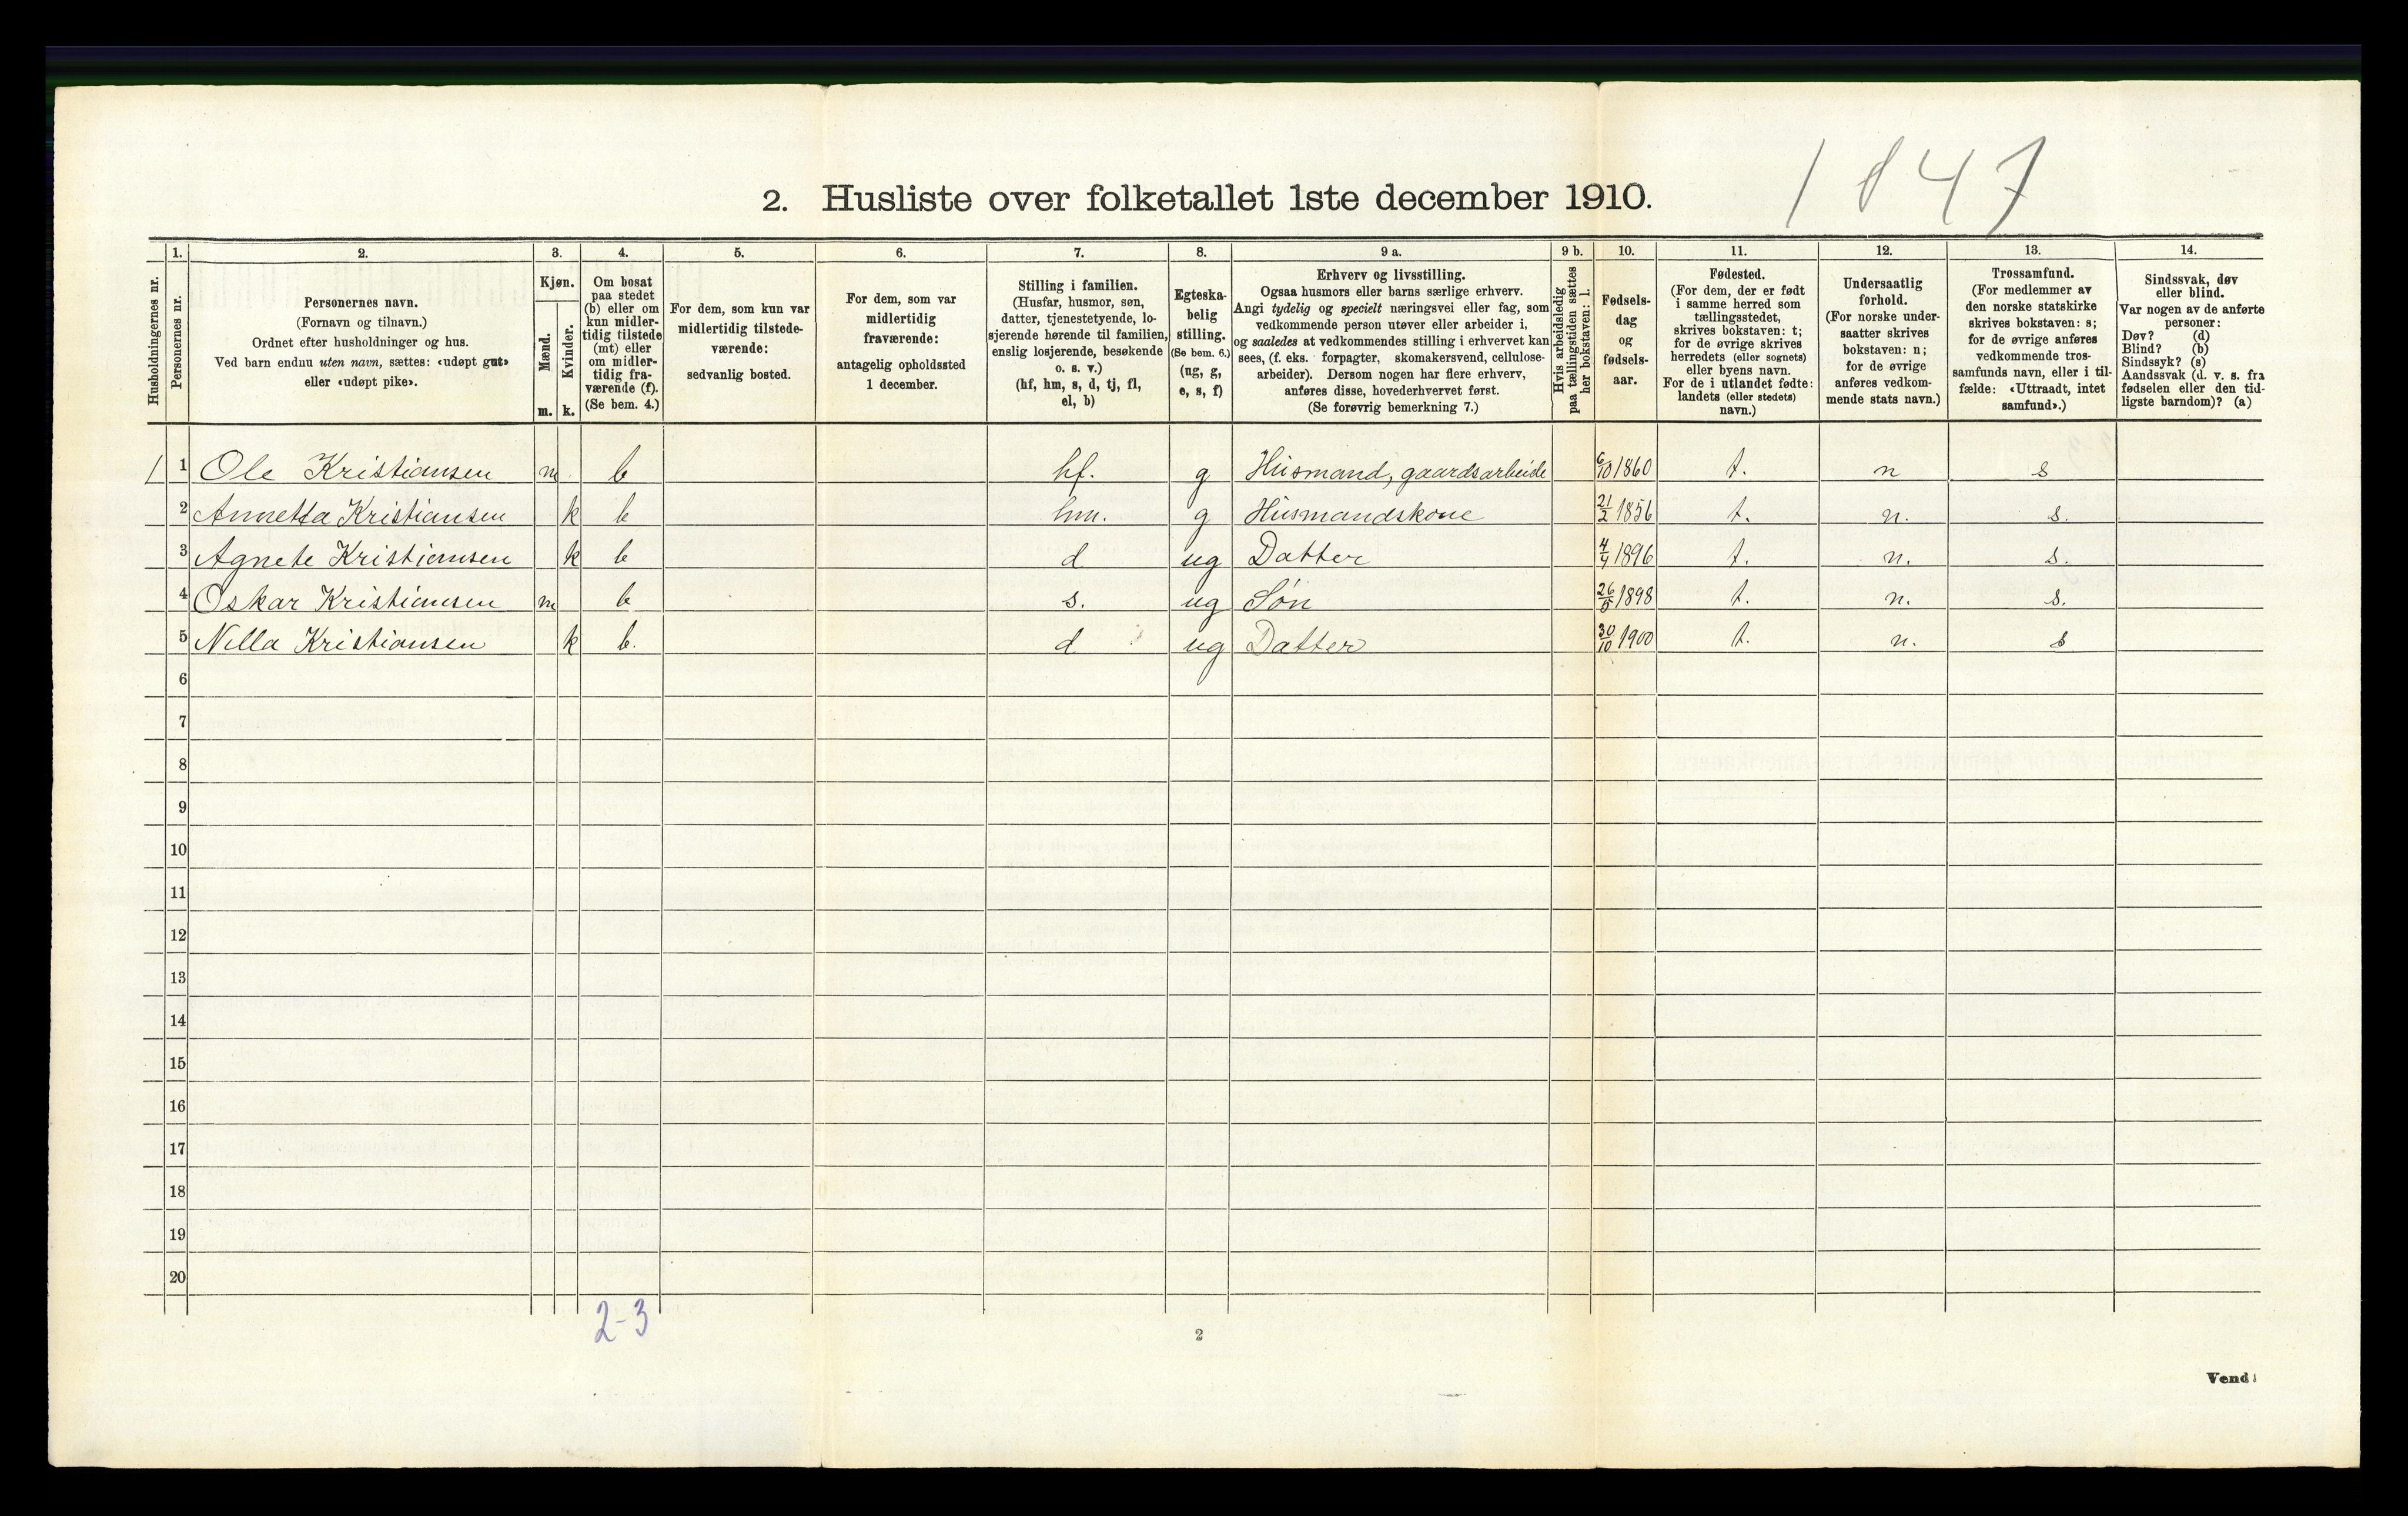 1847
2. Husliste over folketallet 1ste december 1910.
Husholdningernes nr.
1.
Personernes nr.
2.
Personernes navn.
(Fornavn og tilnavn.)
Ordnet efter husholdninger og hus.
Ved barn endnu uten navn, sættes: «udøpt gut»
eller «udøpt pike».
3.
Kjøn.
Mænd.
Kvinder.
m. k.
4.
Om bosat
paa stedet
(b) eller om
kun midler-
tidig tilstede
(mt) eller
om midler-
tidig fra-
værende (f).
(Se bem. 4.)
5.
For dem, som kun var
midlertidig tilstede-
værende:
sedvanlig bosted.
6.
For dem, som var
midlertidig
fraværende:
antagelig opholdssted
1 december.
7.
Stilling i familien.
(Husfar, husmor, søn,
datter, tjenestetyende, lo-
sjerende hørende til familien,
enslig losjerende, besøkende
o. s. v.)
(hf, hm, s, d, tj, fl,
el, b)
8.
Egteska-
belig
stilling.
(Se bem. 6.)
(ug, g,
e, s, f)
9 a.
Erhverv og livsstilling.
Ogsaa husmors eller barns særlige erhverv.
Angi tydelig og specielt næringsvei eller fag, som
vedkommende person utøver eller arbeider i,
og saaledes at vedkommendes stilling i erhvervet kan
sees, (f. eks. forpagter, skomakersvend, cellulose-
arbeider). Dersom nogen har flere erhverv,
anføres disse, hovederhvervet først.
(Se forøvrig bemerkning 7.)
9 b.
Hvis arbeidsledig
paa tællingstiden sættes
her bokstaven: l.
10.
Fødsels-
dag
og
fødsels-
aar.
11.
Fødested.
(For dem, der er født
i samme herred som
tællingsstedet,
skrives bokstaven: t;
for de øvrige skrives
herredets (eller sognets)
eller byens navn.
For de i utlandet fødte:
landets (eller stedets)
navn.)
12.
Undersaatlig
forhold.
(For norske under-
saatter skrives
bokstaven: n;
for de øvrige
anføres vedkom-
mende stats navn.)
13.
Trossamfund.
(For medlemmer av
den norske statskirke
skrives bokstaven: s;
for de øvrige anføres
vedkommende tros-
samfunds navn, eller i til-
fælde: «Uttraadt, intet
samfund».)
14.
Sindssvak, døv
eller blind.
Var nogen av de anførte
personer:
Døv? (d)
Blind? (b)
Sindssyk? (s)
Aandssvak (d. v. s. fra
fødselen eller den tid-
ligste barndom)? (a)
1 1 Ole Kristiansen m b hf. g Husmand, gaardsarbeide 6/10 1860 t. n s
2 Annetta Kristiansen k b hm. g Husmandskone 21/2 1856 t. n. s.
3 Agnete Kristiansen k b d ug Datter 4/4 1896 t. n. s.
4 Oskar Kristiansen m b s. ug Søn 26/5 1898 t. n. s.
5 Nilla Kristiansen k b. d ug Datter 30/10 1900 t. n. s
6
7
8
9
10
11
12
13
14
15
16
17
18
19
20
2-3
2
Vend!